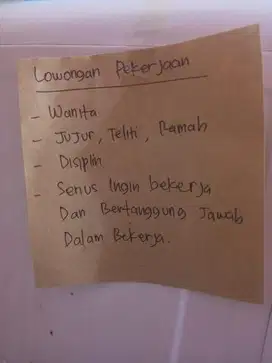 Lowongan Pekerjaan
- Wanita
- Jujur, Teliti, Ramah
- Disiplin
- Serius Ingin bekerja
Dan Bertanggung Jawab
Dalam Bekerja.